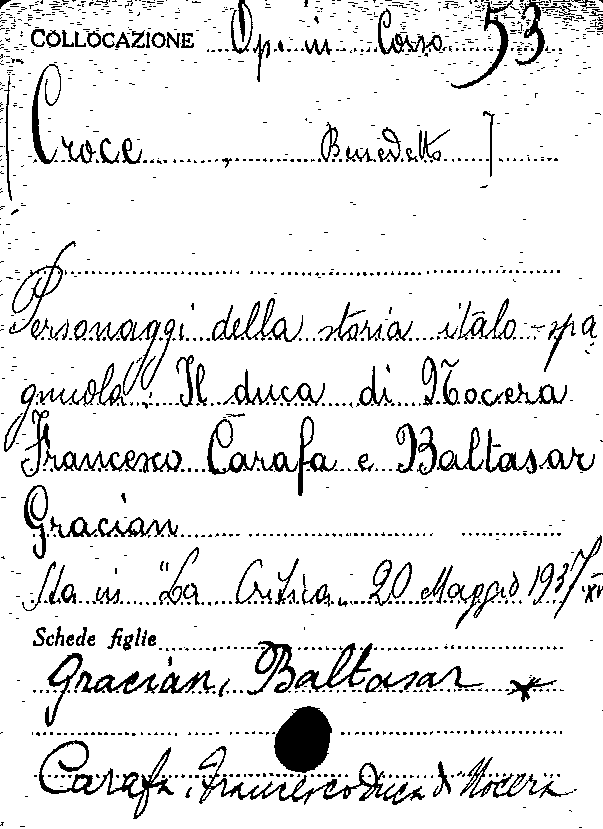 COLLOCAZIONE Op. in Corso 53
Croce, Benedetto]
Personaggi della storia italo-spa
gnuola: Il duca di Nocera
Francesco Carafa e Baltasar
Gracian
Sta in "La Critica" 20 Maggio 1937 XV
Schede figlie
Gracián, Baltasar *
Carafa, Francesco Duca di Nocera